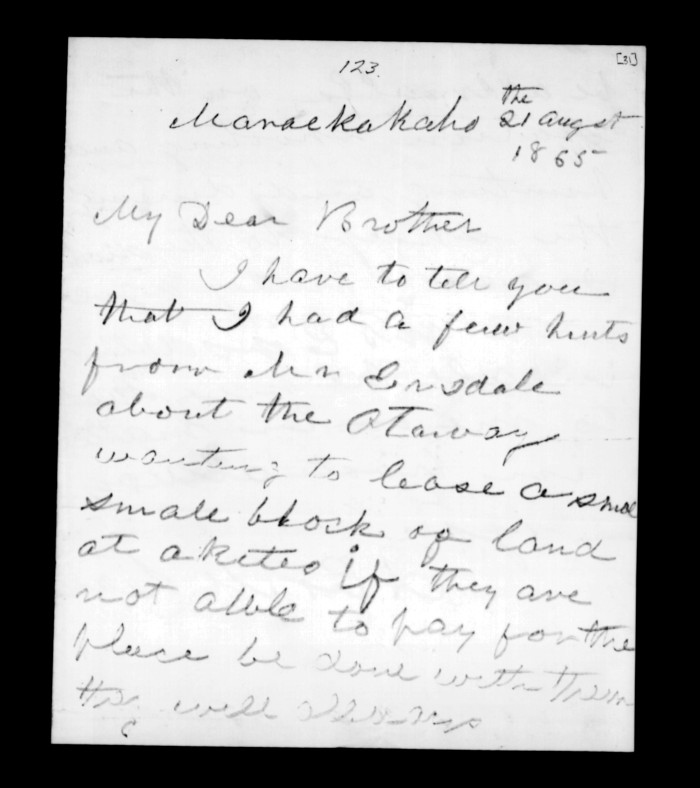 [31]
123.
Maraekakaho the 21 augst
1865
My Dear Brother
I have to tell you
that I had a few hints
from Mr
about the Otaway
wanting to lease a smal
smale block of land
at akiteo if they are
not alble to pay for the
place be done with them
they will